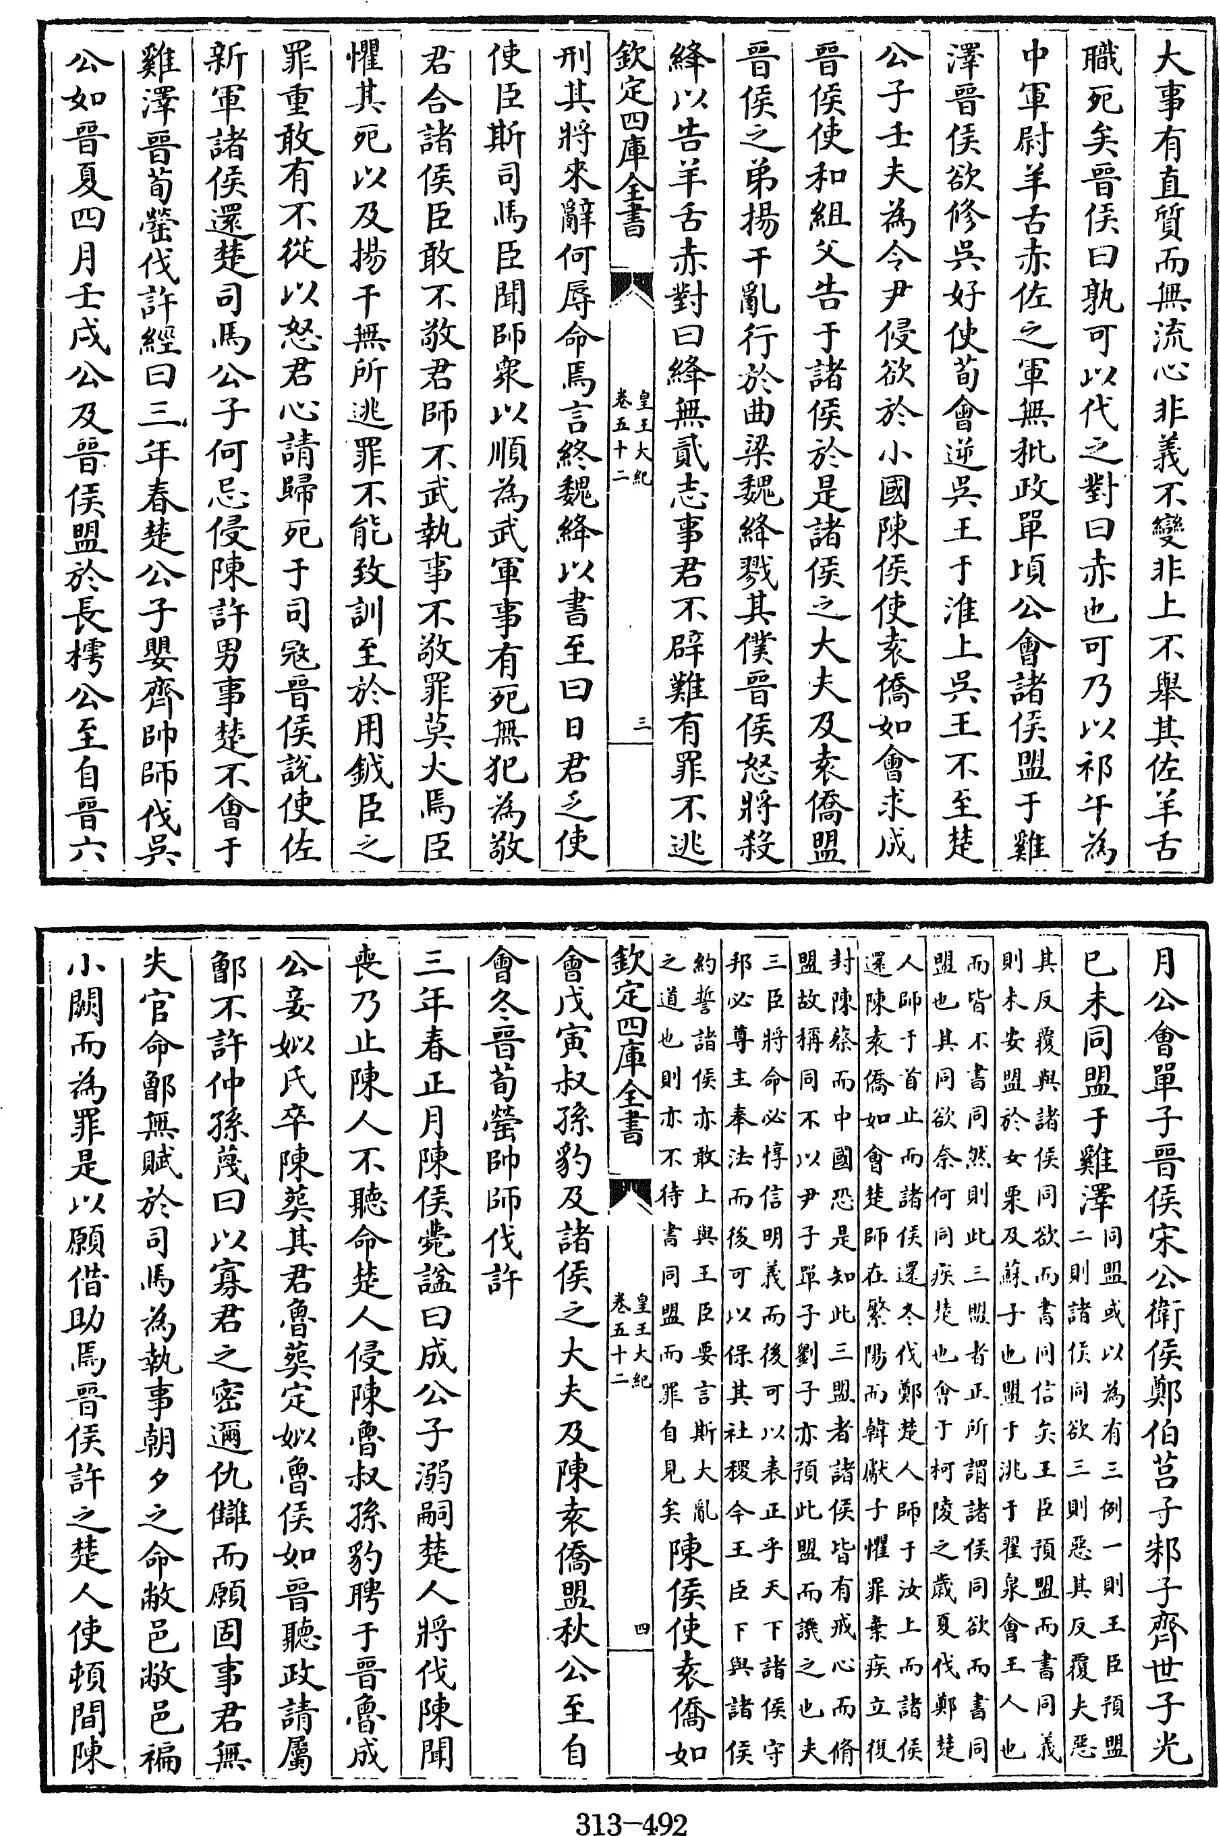 大事有直質而無流心非義不變非上不舉其佐羊舌
職死矣晉侯曰孰可以代之對曰赤也可乃以祁午為
中軍尉羊舌赤佐之軍無秕政單頃公會諸侯盟于雞
澤晉侯欲修吳好使荀會逆吳王于淮上吳王不至楚
公子壬夫為令尹侵欲於小國陳侯使袁僑如會求成
晉侯使和組父告于諸侯於是諸侯之大夫及袁僑盟
晉侯之弟揚干亂行於曲梁魏絳戮其僕晉侯怒將殺
絳以告羊舌赤對曰絳無貳志事君不辟難有罪不逃
欽定四庫全書
皇王大紀
卷五十二
三
刑其將來辭何辱命焉言終魏絳以書至曰日君乏使
使臣斯司馬臣聞師衆以順為武軍事有死無犯為敬
君合諸侯臣敢不敬君師不武執事不敬罪莫大焉臣
懼其死以及揚干無所逃罪不能致訓至於用鉞臣之
罪重敢有不從以怒君心請歸死于司冦晉侯說使佐
新軍諸侯還楚司馬公子何忌侵陳許男事楚不會于
雞澤晉荀罃伐許經曰三年春楚公子嬰齊帥師伐吳
公如晉夏四月壬戌公及晉侯盟於長樗公至自晉六
月公會單子晉侯宋公衛侯鄭伯莒子邾子齊世子光
已未同盟于雞澤
同盟或以為有三例一則王臣預盟
二則諸侯同欲三則惡其反覆夫惡
其反覆與諸侯同欲而書同信矣王臣預盟而書同義
則未安盟於女栗及蘇子也盟于洮于翟泉會王人也
而皆不書同然則此三盟者正所謂諸侯同欲而書同
盟也其同欲奈何同疾楚也會于柯陵之歲夏伐鄭楚
人師于首止而諸侯還冬伐鄭楚人師于汝上而諸侯
還陳袁僑如會楚師在繁陽而韓獻子懼罪棄疾立復
封陳蔡而中國恐是知此三盟者諸侯皆有戒心而脩
盟故稱同不以尹子單子劉子亦預此盟而譏之也夫
三臣將命必惇信明義而後可以表正乎天下諸侯守
邦必尊主奉法而後可以保其社稷今王臣下與諸侯
約誓諸侯亦敢上與王臣要言斯大亂
之道也則亦不待書同盟而罪自見矣
陳侯使袁僑如
欽定四庫全書
皇王大紀
卷五十二
四
會戊寅叔孫豹及諸侯之大夫及陳袁僑盟秋公至自
會冬晉荀罃帥師伐許
三年春正月陳侯薨諡曰成公子溺嗣楚人將伐陳聞
喪乃止陳人不聽命楚人侵陳魯叔孫豹聘于晉魯成
公妾姒氏卒陳葬其君魯葬定姒魯侯如晉聽政請屬
鄫不許仲孫蔑曰以寡君之密邇仇讎而願固事君無
失官命鄫無賦於司馬為執事朝夕之命敝邑敝邑褊
小闕而為罪是以願借助焉晉侯許之楚人使頓間陳
313-492